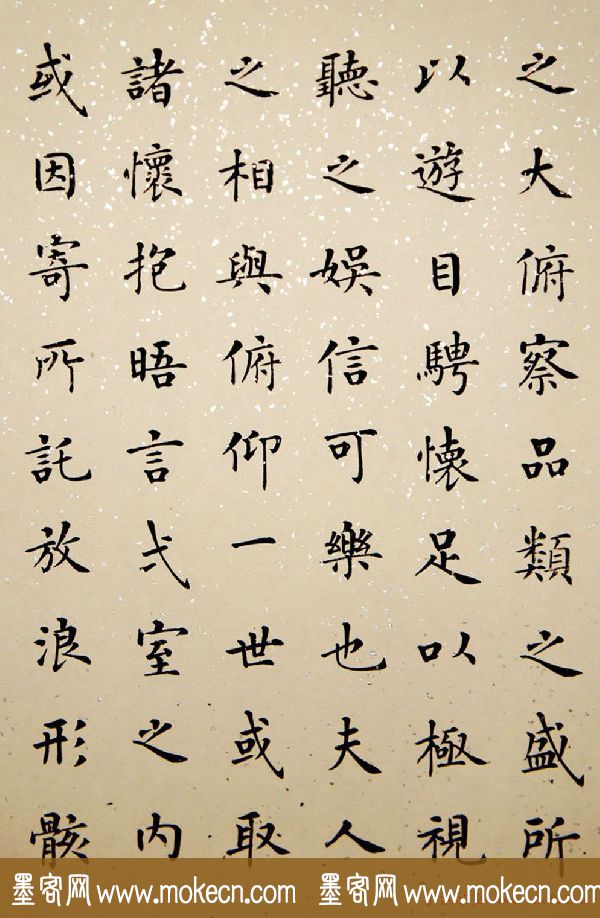 之大俯察品類之盛所
以遊目騁懷足以極視
聽之娛信可樂也夫人
之相與俯仰一世或取
諸懷抱晤言弍室之內
或因寄所託放浪形骸
墨客网 www.mokecn.com 墨客网 www.mokecn.com